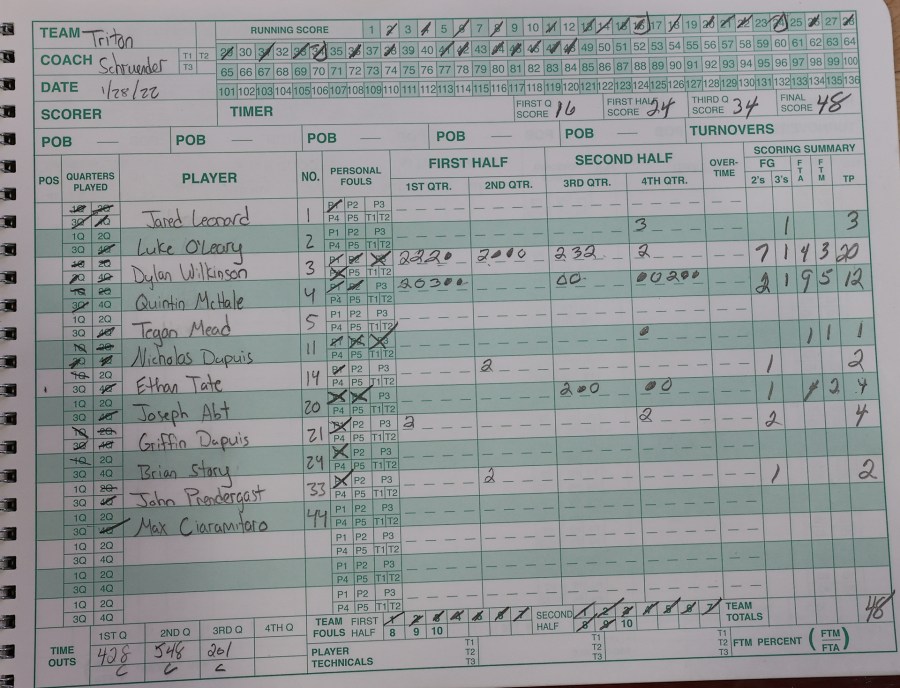 TEAM Triton RUNNING SCORE 1 2 3 4 5 6 7 8 9 10 11 12 13 14 15 16 17 18 19 20 21 22 23 24 25 26 27 28
COACH Schruender T1 T2 T3 29 30 31 32 33 34 35 36 37 38 39 40 41 42 43 44 45 46 47 48 49 50 51 52 53 54 55 56 57 58 59 60 61 62 63 64
65 66 67 68 69 70 71 72 73 74 75 76 77 78 79 80 81 82 83 84 85 86 87 88 89 90 91 92 93 94 95 96 97 98 99 100
DATE 1/28/22 101 102 103 104 105 106 107 108 109 110 111 112 113 114 115 116 117 118 119 120 121 122 123 124 125 126 127 128 129 130 131 132 133 134 135 136
SCORER TIMER FIRST Q SCORE 16 FIRST HALF SCORE 24 THIRD Q SCORE 34 FINAL SCORE 48
POB POB POB POB POB TURNOVERS
POS QUARTERS PLAYED PLAYER NO. PERSONAL FOULS FIRST HALF SECOND HALF OVER-TIME SCORING SUMMARY
1ST QTR. 2ND QTR. 3RD QTR. 4TH QTR. FG 2's 3's FTA FTM TP
1Q 2Q 3Q 4Q Jared Leonard 1 P1 P2 P3 P4 P5 T1 T2 3 1 3
1Q 2Q 3Q 4Q Luke O'Leary 2 P1 P2 P3 P4 P5 T1 T2 2220 2000 232 2 7 1 4 3 20
1Q 2Q 3Q 4Q Dylan Wilkinson 3 P1 P2 P3 P4 P5 T1 T2 20300 00 00200 2 1 9 5 12
1Q 2Q 3Q 4Q Quintin McHale 4 P1 P2 P3 P4 P5 T1 T2
1Q 2Q 3Q 4Q Tegan Mead 5 P1 P2 P3 P4 P5 T1 T2 1 1 1
1Q 2Q 3Q 4Q Nicholas Dupuis 11 P1 P2 P3 P4 P5 T1 T2 2 1 2
1Q 2Q 3Q 4Q Ethan Tate 14 P1 P2 P3 P4 P5 T1 T2 200 00 1 2 4
1Q 2Q 3Q 4Q Joseph Abt 20 P1 P2 P3 P4 P5 T1 T2 2 2 2 4
1Q 2Q 3Q 4Q Griffin Dupuis 21 P1 P2 P3 P4 P5 T1 T2
1Q 2Q 3Q 4Q Brian Story 24 P1 P2 P3 P4 P5 T1 T2 2 1 2
1Q 2Q 3Q 4Q John Prendergast 33 P1 P2 P3 P4 P5 T1 T2
1Q 2Q 3Q 4Q Max Ciaramitaro 44 P1 P2 P3 P4 P5 T1 T2
1Q 2Q 3Q 4Q P1 P2 P3 P4 P5 T1 T2
1Q 2Q 3Q 4Q P1 P2 P3 P4 P5 T1 T2
1Q 2Q 3Q 4Q P1 P2 P3 P4 P5 T1 T2
TIME OUTS 1ST Q 2ND Q 3RD Q 4TH Q TEAM FOULS FIRST HALF 1 2 3 4 5 6 7 8 9 10 SECOND HALF 1 2 3 4 5 6 7 8 9 10 TEAM TOTALS 48
428 548 201 PLAYER TECHNICALS T1 T2 T3 T1 T2 T3 T1 T2 T3 FTM PERCENT (FTM/FTA)
C C C